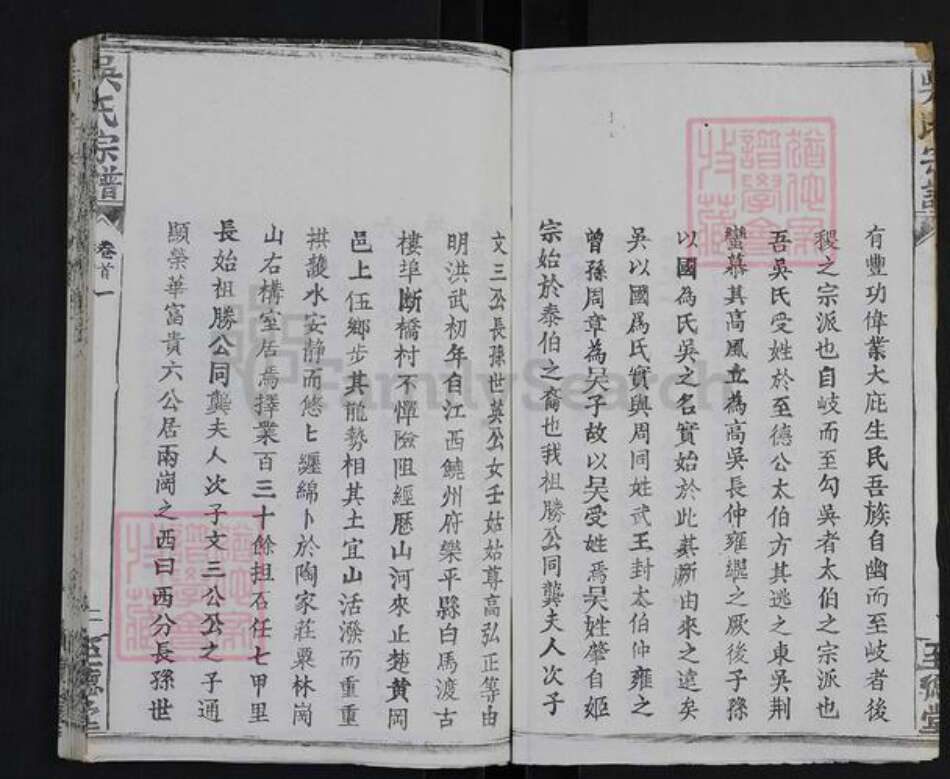 有豐功偉業大庇生民吾族自幽而至岐者後
稷之宗派也自岐而至勾吳者太伯之宗派也
吾吳氏受姓於至德公太伯方其逃之東吳荆
蠻慕其高風立為高吳長仲雍繼之厥後子孫
以國為氏吳之名實始於此其所由來之遠矣
吳以國爲氏實與周同姓武王封太伯仲雍之
曾孫周章為吴子故以吴受姓焉吴姓肇自姬
宗始於泰伯之裔也我祖勝公同龔夫人次子
文三公長孫世英公女壬姑姑尊高弘正等由
明洪武初年自江西饒州府樂平縣白馬渡古
樓埠斷橋村不憚險阻經歷山河來止楚黄岡
邑上伍鄉步其龍勢相其土宜山活潑而重重
拱馥水安静而悠匕纏綿卜於陶家莊粟林崗
山右構室居焉擇業百三十餘担石任七甲里
長始祖勝公同龔夫人次子文三公公之子通
顯榮華富貴六公居兩崗之西曰西分長孫世
吳氏宗譜
卷首一
二
至德堂
吳氏宗譜
至德堂
猶他家譜學會收藏
猶他家譜學會收藏
FamilySearch